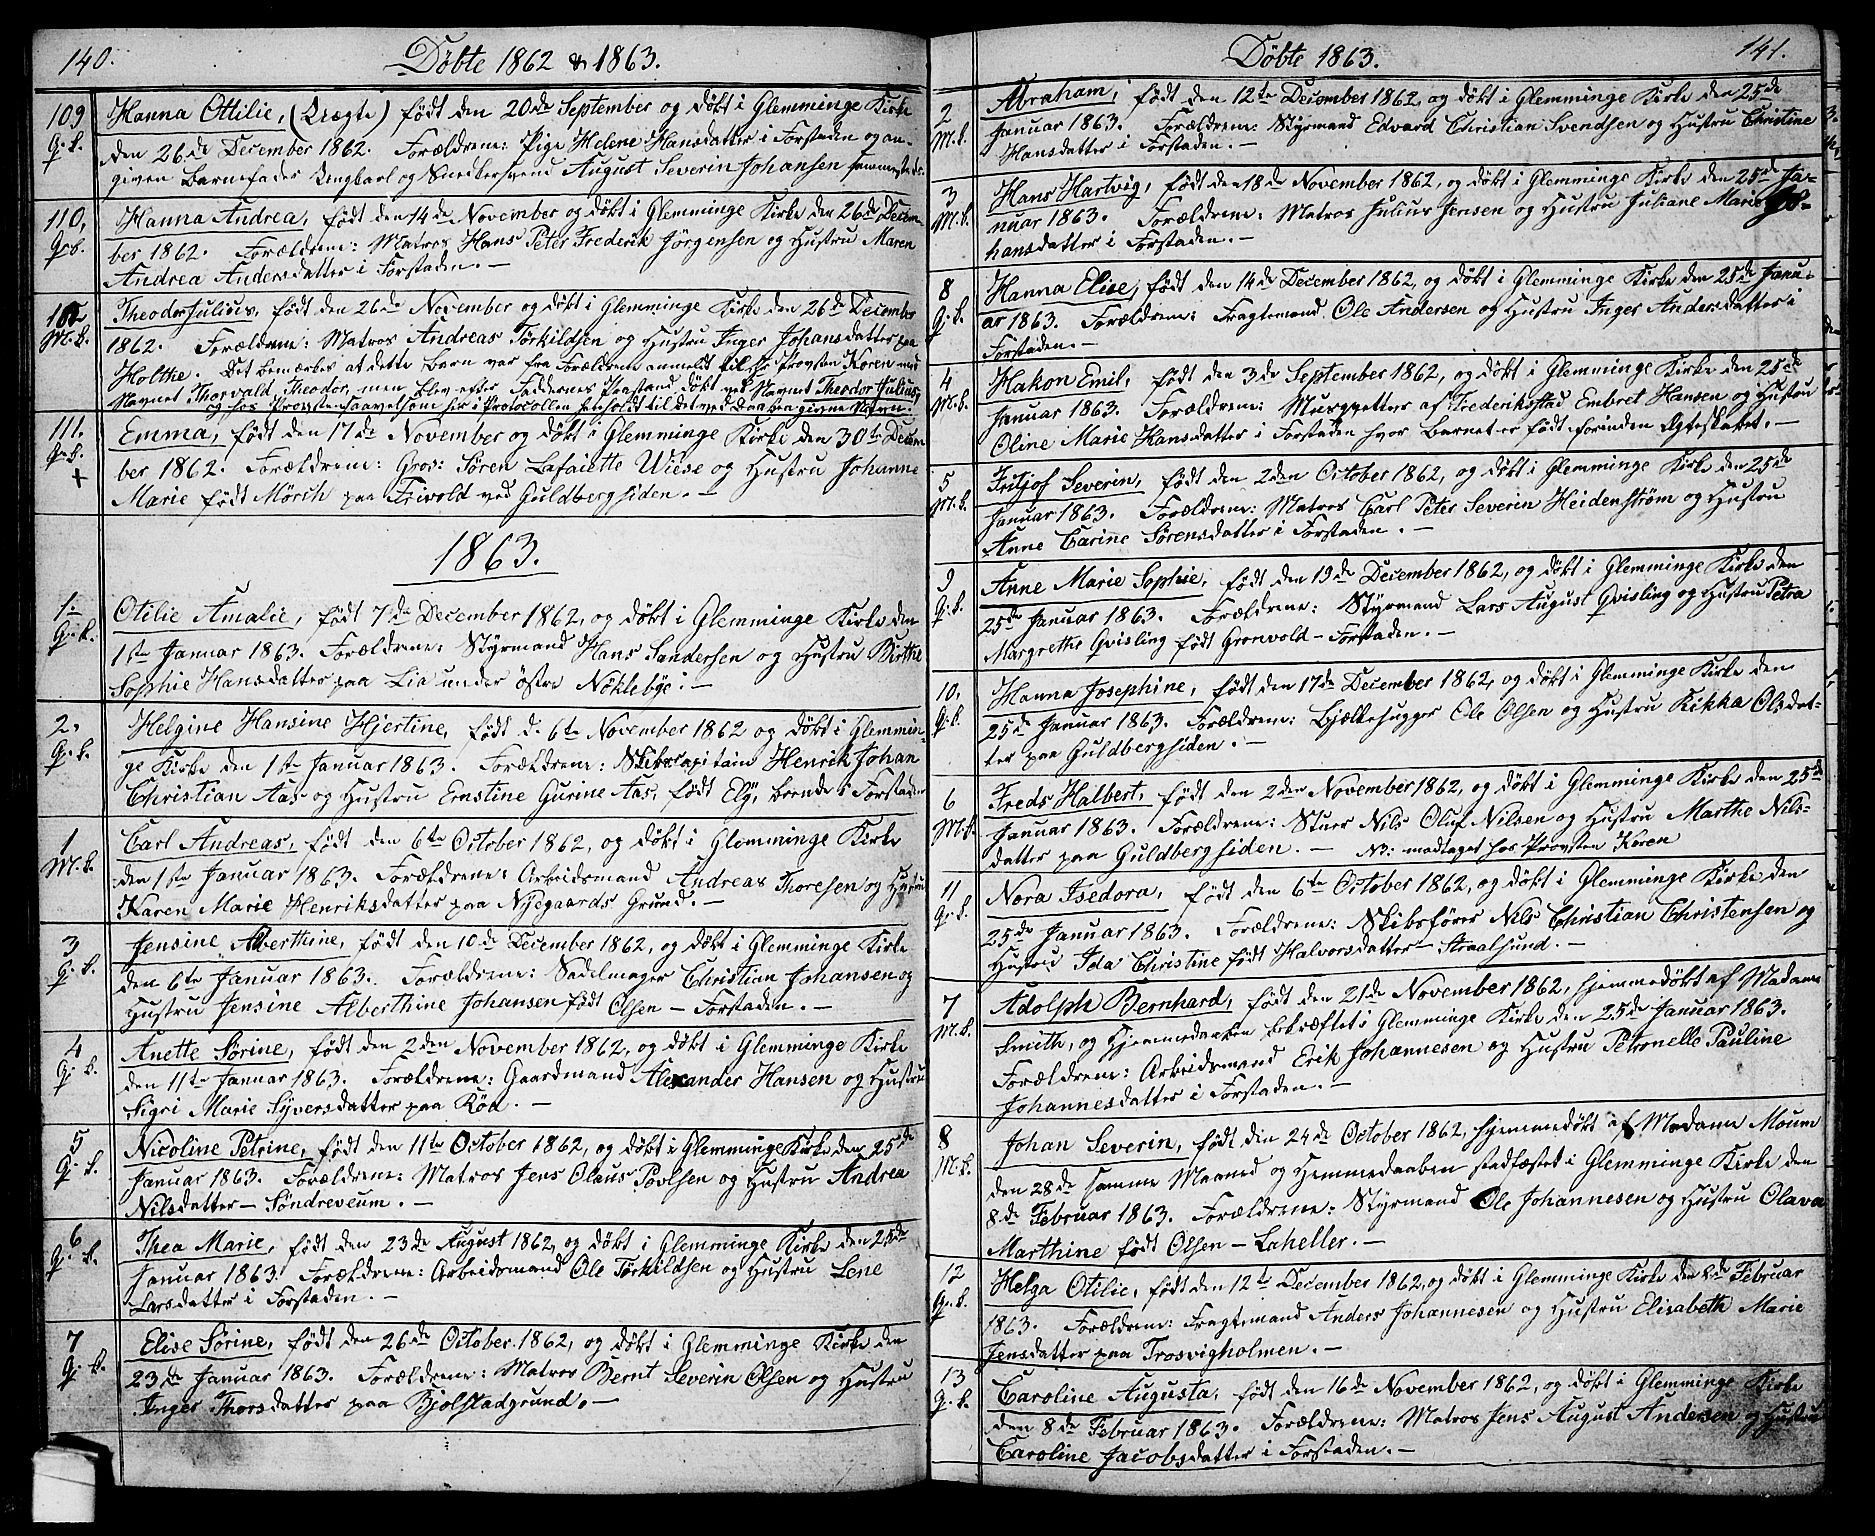 140.
Döbte 1862 & 1863.
109
G. b.
Hanna Ottilie, (Uægte) född den 20de September og döbt i Glemminge Kirke
den 26de December 1862. Forældrene: Pige Helene Hansdatter i Forstaden og an-
given Barnefader Ungkarl og Snedkersvend August Severin Johansen sammesteds.
110,
G. b.
Hanna Andrea, född den 14de November og döbt i Glemminge Kirke den 26de Decem-
ber 1862. Forældrene: Matros Hans Peter Frederik Jörgensen og Hustru Maren
Andrea Andersdatter i Forstaden. —
M. b.
Theodor Julius, född den 26de November og döbt i Glemminge Kirke den 26de December
1862. Forældrene: Matros Andreas Törkildsen og Hustru Inger Johansdatter paa
Holthe. Det bemærkes at dette Barn var fra Forældrene anmeldt til Hr Provsten Koren med
Navnet Thorvald Theodor, men blev efter Faddernes Paastand döbt ved Navnet Theodor Julius,
og hos Provsten saavelsom her i Protocollen beholdt til det ved Daaben givne Navn.
111.
G. b.
+
Emma, född den 17de November og döbt i Glemminge Kirke den 30te Decem
ber 1862. Forældrene: Gros: Sören Lafaiette Wiese og Hustru Johanne
Marie född Mörch paa Frivold ved Guldbergsiden. —
1863.
1
G. b.
Otilie Amalie, född 7de December 1862, og döbt i Glemminge Kirke den
1ste Januar 1863. Forældrene: Styrmand Hans Sandersen og Hustru Birthe
Sophie Hansdatter paa Lia under östre Nöklebye. —
2,
G. b.
Helgine Hansine Hjertine, född d. 6te November 1862 og döbt i Glemmin-
ge Kirke den 1ste Januar 1863. Forældrene: Skibscapitain Henrik Johan
Christian Aas og Hustru Ernstine Gurine Aas, född Ely, boende i Forstaden
1
M. b.
Carl Andreas, född den 6te October 1862, og döbt i Glemminge Kirke
den 1ste Januar 1863. Forældrene: Arbeidsmand Andreas Thoresen og Hustru
Karen Marie Henriksdatter paa Nyegaards Grund. —
3
G. b.
Jensine Alberthine, född den 10de December 1862, og döbt i Glemminge Kirke
den 6te Januar 1863. Forældrene: Sadelmager Christian Johansen og
Hustru Jensine Alberthine Johansen född Olsen — Forstaden. —
4
G. b.
Anette Sörine, född den 2den November 1862, og döbt i Glemminge Kirke
den 11te Januar 1863. Forældrene: Gaardmand Alexander Hansen og Hustru
Sigri Marie Syversdatter paa Röd. —
5
G. b.
Nicoline Petrine, född den 11te October 1862, og döbt i Glemminge Kirke den 25de
Januar 1863. Forældrene: Matros Jens Olaus Povlsen og Hustru Andrea
Nilsdatter — Söndreveum. —
6
G. b.
Thea Marie, född den 23de August 1862, og döbt i Glemminge Kirke den 25de
Januar 1863. Forældrene: Arbeidsmand Ole Törkildsen og Hustru Lene
Larsdatter i Forstaden. —
7
G. b.
Elise Sörine, född den 26de October 1862, og döbt i Glemminge Kirke den
23de Januar 1863. Forældrene: Matros Bernt Severin Olsen og Hustru
Inger Thorsdatter paa Bjölstadgrund. —
Döbte 1863.
141.
2
M. b.
Abraham, född den 12te December 1862, og döbt i Glemminge Kirke den 25de
Januar 1863. Forældrene: Styrmand Edvard Christian Svendsen og Hustru Christine
Hansdatter i Forstaden. —
3
M. b.
Hans Hartvig, född den 18de November 1862, og döbt i Glemminge Kirke den 25de Ja-
nuar 1863. Forældrene: Matros Julius Jensen og Hustru Juliane Marie Jo-
hansdatter i Forstaden. —
8
G. b.
Hanna Elise, född den 14de December 1862, og döbt i Glemminge Kirke den 25de Janu-
ar 1863. Forældrene: Fragtemand Ole Andersen og Hustru Inger Andersdatter i
Forstaden. —
4
M. b.
Hakon Emil, född den 3de September 1862, og döbt i Glemminge Kirke den 25de
Januar 1863. Forældrene: Embret Hansen og Hustru
Oline Marie Hansdatter i Forstaden hvor Barnet er född forinden Ægteskabet. —
5
M. b.
Fritjof Severin, född den 2den October 1862, og döbt i Glemminge Kirke den 25de
Januar 1863. Forældrene: Matros Carl Peter Severin Heidenström og Hustru
Anne Carine Sörensdatter i Forstaden. —
9
G. b.
Anne Marie Sophie, född den 19de December 1862, og döbt i Glemminge Kirke den
25de Januar 1863. Forældrene: Styrmand Lars August Qvisling og Hustru Petra
Margrethe Qvisling född Gronvold — Forstaden. —
10,
G. b.
Hanna Josephine, född den 17de December 1862, og döbt i Glemminge Kirke den
25de Januar 1863. Forældrene: Bjælkehugger Ole Olsen og Hustru Kikka Olsdat-
ter paa Guldbergsiden. —
6
M. b.
Freds Halbert, född den 2den November 1862, og döbt i Glemminge Kirke den 25de
Januar 1863. Forældrene: Stuer Nils Oluf Nilsen og Hustru Marthe Nils-
datter paa Guldbergsiden. — NB: modtaget hos Provsten Koren
11
G. b.
Nora Isedora, född den 6te October 1862, og döbt i Glemminge Kirke den
25de Januar 1863. Forældrene: Skibsförer Nils Christian Christensen og
Hustru Ida Christine född Halvorsdatter — Straalsund. —
7
M. b.
Adolph Bernhard, född den 21de November 1862, hjemmedöbt af Madame
Smith, og Hjemmedaaben bekræftet i Glemminge Kirke den 25de Januar 1863.
Forældrene: Arbeidsmand Erik Johannesen og Hustru Petronelle Pauline
Johannesdatter i Forstaden. —
8
M. b.
Johan Severin, född den 24de October 1862, hjemmedöbt af Madame Moum
den 28de samme Maaned og Hemmedaaben stadfæstet i Glemminge Kirke den
8de Februar 1863. Forældrene: Styrmand Ole Johannesen og Hustru Olava
Marthine född Olsen — Laheller. —
12
G. b.
Helga Otilie, född den 12te December 1862, og döbt i Glemminge Kirke den 8de Februar
1863. Forældrene: Fragtemand Anders Johannesen og Hustru Elisabeth Marie
Jensdatter paa Trosvigholmen. —
13
G. b.
Caroline Augusta, född den 16de November 1862, og döbt i Glemminge Kirke
den 8de Februar 1863. Forældrene: Matros Jens August Andersen og Hustru
Caroline Jacobsdatter i Forstaden. —